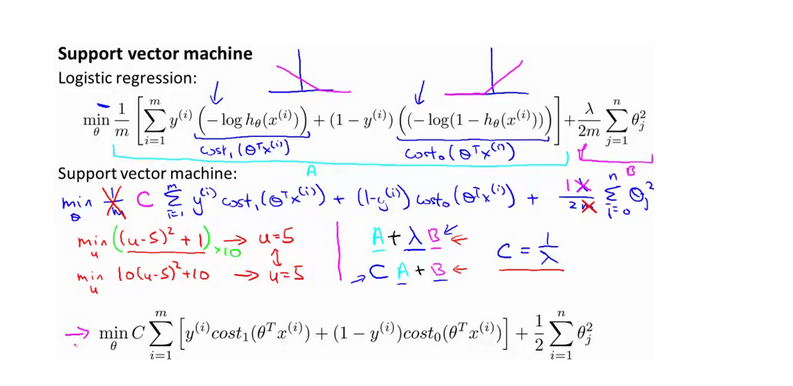 Support vector machine
Logistic regression:
min_θ 1/m [ Σ_{i=1}^{m} y^{(i)} (−log h_θ(x^{(i)})) + (1 − y^{(i)}) ((−log(1 − h_θ(x^{(i)}))) ] + λ/2m Σ_{j=1}^{n} θ_j^2
cost₁(θᵀx^{(i)}) cost₀(θᵀx^{(i)})
A B
Support vector machine:
min_θ 1/m C Σ_{i=1}^{m} y^{(i)} cost₁(θᵀx^{(i)}) + (1-y^{(i)}) cost₀(θᵀx^{(i)}) + 1 λ/2m Σ_{i=0}^{n} θ_j^2
min_u ((u-5)² + 1) ×10 → u=5 A + λ B ← C = 1/λ
min_u 10(u-5)²+10 → u=5 → C A + B ←
→ min_θ C Σ_{i=1}^{m} [ y^{(i)} cost₁(θ^T x^{(i)}) + (1 − y^{(i)}) cost₀(θ^T x^{(i)}) ] + 1/2 Σ_{i=1}^{n} θ_j^2